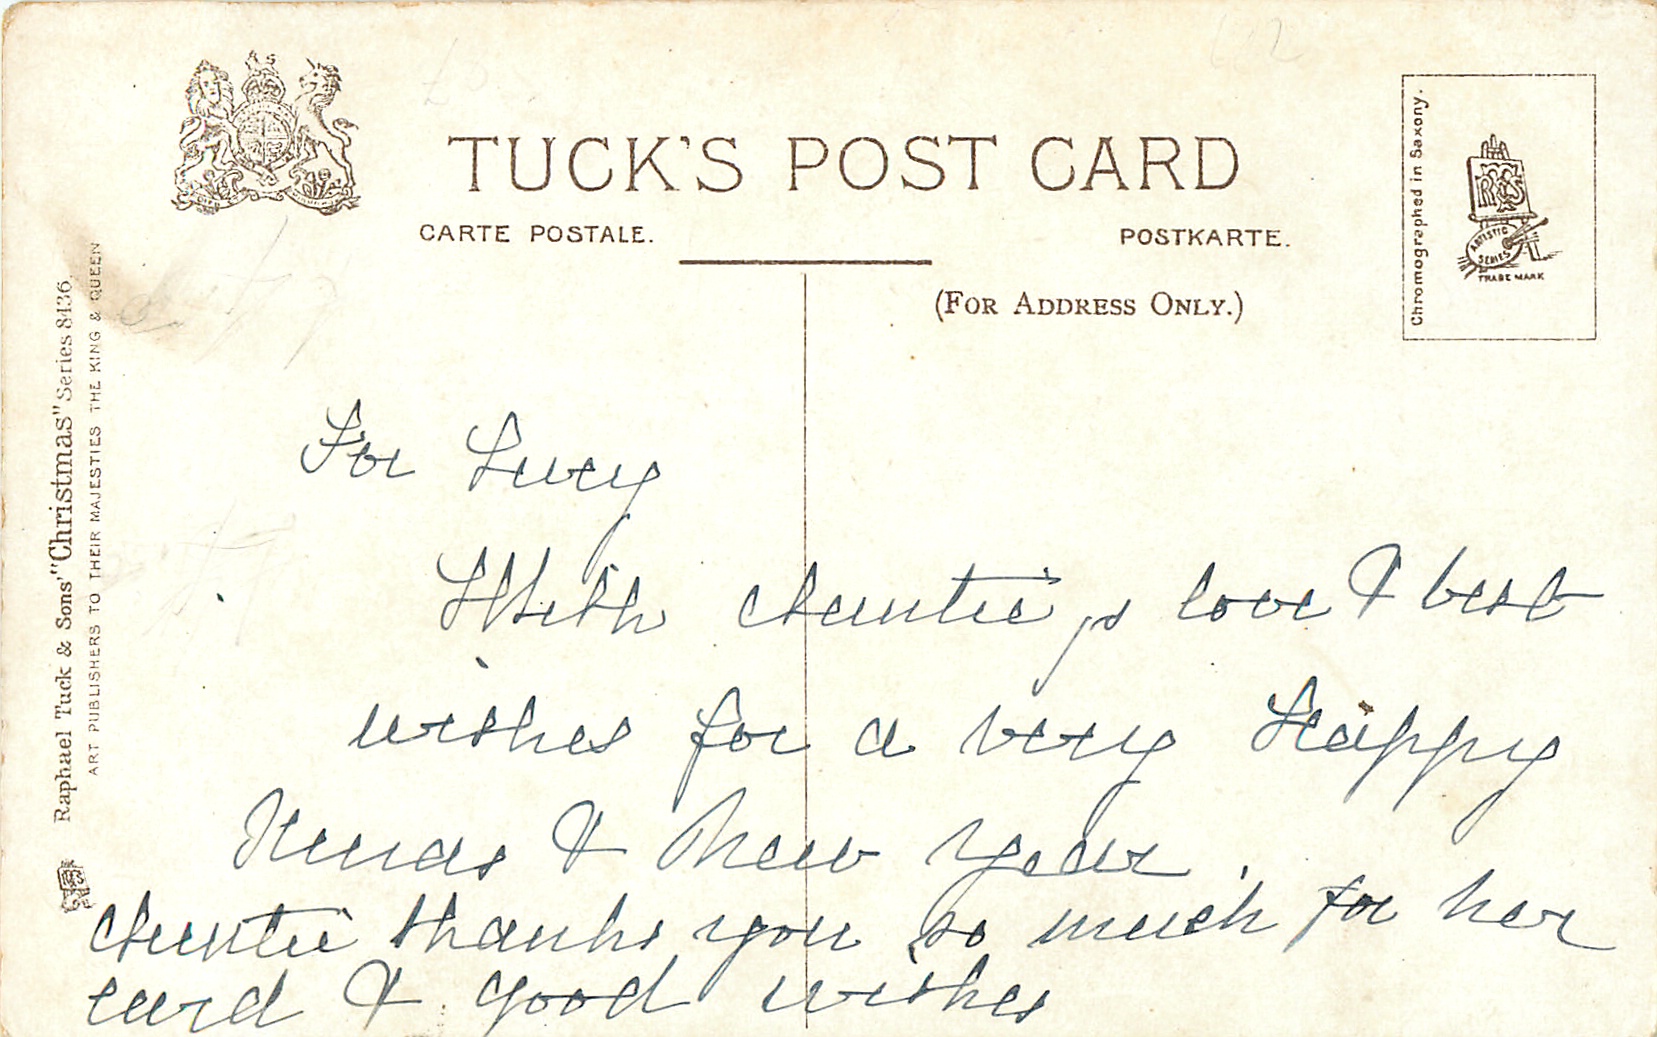 TUCK'S POST CARD
CARTE POSTALE.
POSTKARTE.
(FOR ADDRESS ONLY.)
Chromographed in Saxony.
ARTISTIC
SERIES
TRADE MARK
Raphael Tuck & Sons' "Christmas" Series 8436.
ART PUBLISHERS TO THEIR MAJESTIES THE KING & QUEEN
For Lucy
With Auntie's love & best
wishes for a very Happy
Xmas & New Year.
Auntie thanks you so much for her
card & good wishes